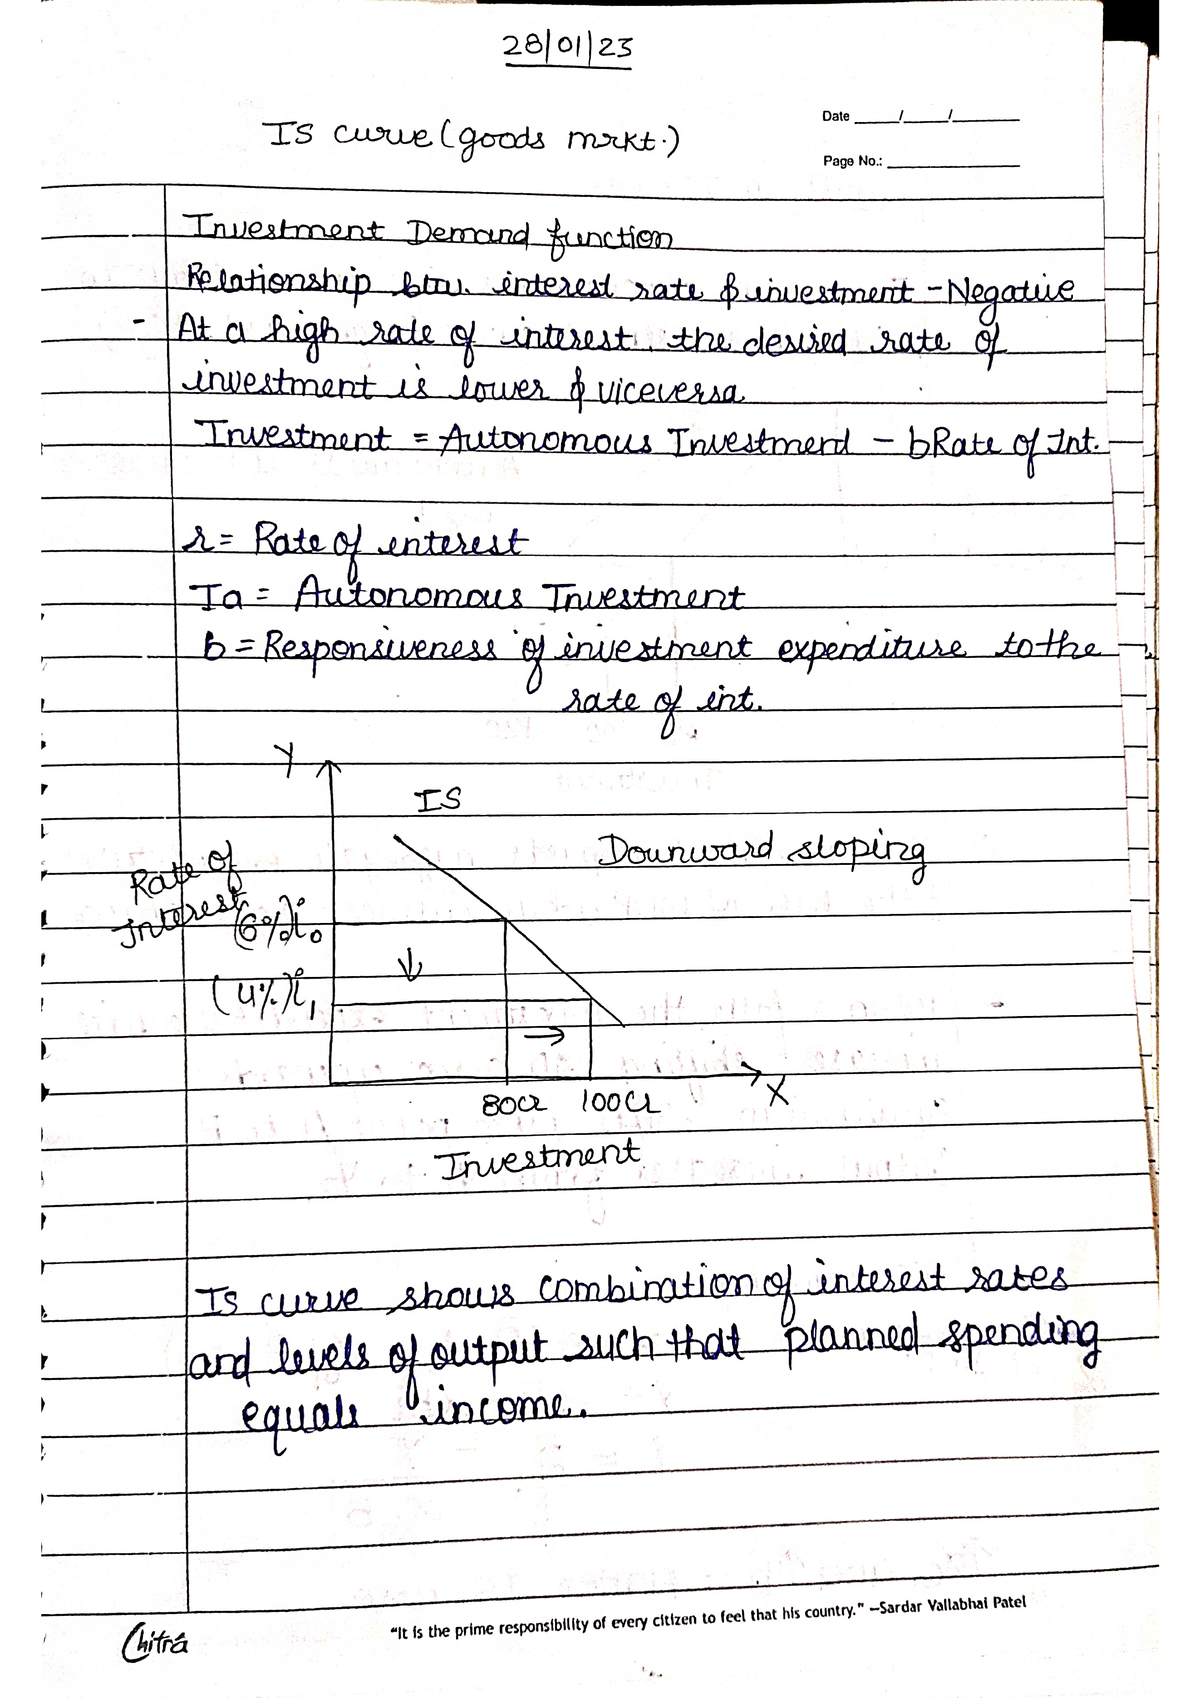 28/01/23
IS curve (goods mrkt.)
Date ____/____/______
Page No.: ____________
Investment Demand function
Relationship btw. interest rate & investment - Negative
- At a high rate of interest, the desired rate of
investment is lower & viceversa
Investment = Autonomous Investmend - bRate of Int.
r = Rate of interest
Ia = Autonomous Investment
b = Responsiveness of investment expenditure to the
rate of int.
Y
IS
Downward sloping
Rate of
interest
(6%)i₀
(4%)i₁
X
80Cr 100Cr
Investment
IS curve shows combination of interest rates
and levels of output such that planned spending
equals income.
"It is the prime responsibility of every citizen to feel that his country." –Sardar Vallabhai Patel
Chitra